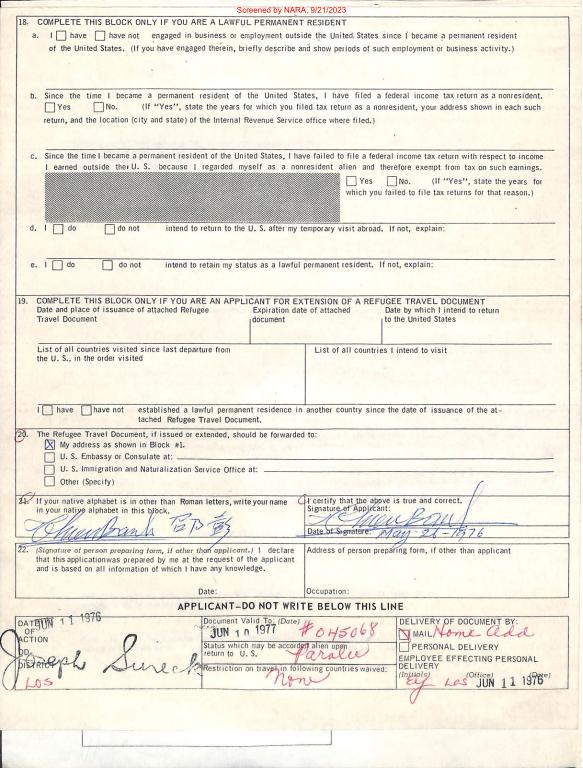 Screened by NARA, 9/21/2023
18. COMPLETE THIS BLOCK ONLY IF YOU ARE A LAWFUL PERMANENT RESIDENT
a. I have have not engaged in business or employment outside the United States since I became a permanent resident
of the United States. (If you have engaged therein, briefly describe and show periods of such employment or business activity.)
b. Since the time I became a permanent resident of the United States, I have filed a federal income tax return as a nonresident.
Yes No. (If "Yes", state the years for which you filed tax return as a nonresident, your address shown in each such
return, and the location (city and state) of the Internal Revenue Service office where filed.)
c. Since the time I became a permanent resident of the United States, I have failed to file a federal income tax return with respect to income
I earned outside the U. S. because I regarded myself as a nonresident alien and therefore exempt from tax on such earnings.
Yes No. (If "Yes", state the years for
which you failed to file tax returns for that reason.)
d. I do do not intend to return to the U. S. after my temporary visit abroad. If not, explain:
e. I do do not intend to retain my status as a lawful permanent resident. If not, explain:
19. COMPLETE THIS BLOCK ONLY IF YOU ARE AN APPLICANT FOR EXTENSION OF A REFUGEE TRAVEL DOCUMENT
Date and place of issuance of attached Refugee
Travel Document
Expiration date of attached
document
Date by which I intend to return
to the United States
List of all countries visited since last departure from
the U. S., in the order visited
List of all countries I intend to visit
I have have not established a lawful permanent residence in another country since the date of issuance of the at-
tached Refugee Travel Document.
20. The Refugee Travel Document, if issued or extended, should be forwarded to:
My address as shown in Block #1.
U. S. Embassy or Consulate at:
U. S. Immigration and Naturalization Service Office at:
Other (Specify)
21. If your native alphabet is in other than Roman letters, write your name
in your native alphabet in this block.
I certify that the above is true and correct.
Signature of Applicant:
Date of Signature: May-21-1976
22. (Signature of person preparing form, if other than applicant.) I declare
that this application was prepared by me at the request of the applicant
and is based on all information of which I have any knowledge.
Date:
Address of person preparing form, if other than applicant
Occupation:
APPLICANT—DO NOT WRITE BELOW THIS LINE
DATE OF ACTION JUN 11 1976
DD
DISTRICT LOS
Joseph Sureck
Document Valid To: (Date)
JUN 10 1977 #045068
Status which may be accorded alien upon
return to U. S. Parolee
Restriction on travel in following countries waived:
None
DELIVERY OF DOCUMENT BY:
MAIL Home add
PERSONAL DELIVERY
EMPLOYEE EFFECTING PERSONAL
DELIVERY
(Initials) (Office) (Date)
LOS JUN 11 1976